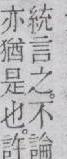 統言之。不論
亦猶是也。許